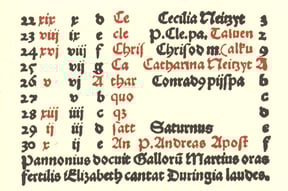 22 xix x d Ce Cecilia Neitzyt 3
23 viij ix e cle P.Cle.pa. Taluen 2
24 xvj viij f Chris Chrisod m. Calku 9
25 viij g Ca Catharina Neitzyt A
26 v vj A thar Conrad9 pijspa b
27 v b quo c
28 xiij iiij c q3 d
29 ij iij d satt Saturnus e
30 x ij e An P. Andreas Apost f
Pannonius docuit Gallorũ Martius oras
fertilis Elizabeth cantat Duringia laudes.